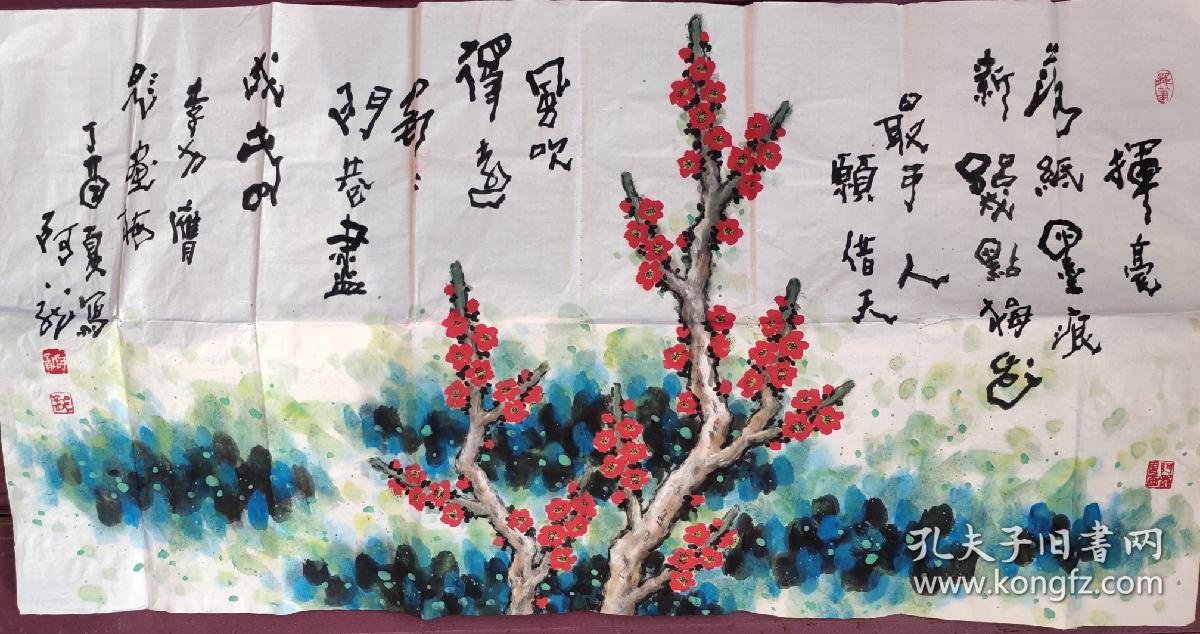 揮毫
落紙墨痕
新幾點梅花
最可人
願借天
風吹
得遠
家:
門巷盡
成春
李方膺
題畫梅
丁酉夏寫
阿龍
孔夫子旧書网
www.kongfz.com